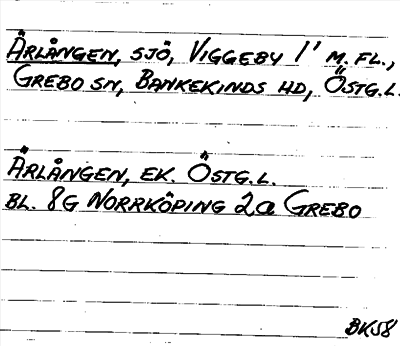 ÄRLÅNGEN, SJÖ, VIGGEBY 1' M. FL.,
GREBO SN, BANKEKINDS HD, ÖSTG.L.
ÄRLÅNGEN, EK. ÖSTG.L.
BL. 8G NORRKÖPING 2a GREBO
BK58